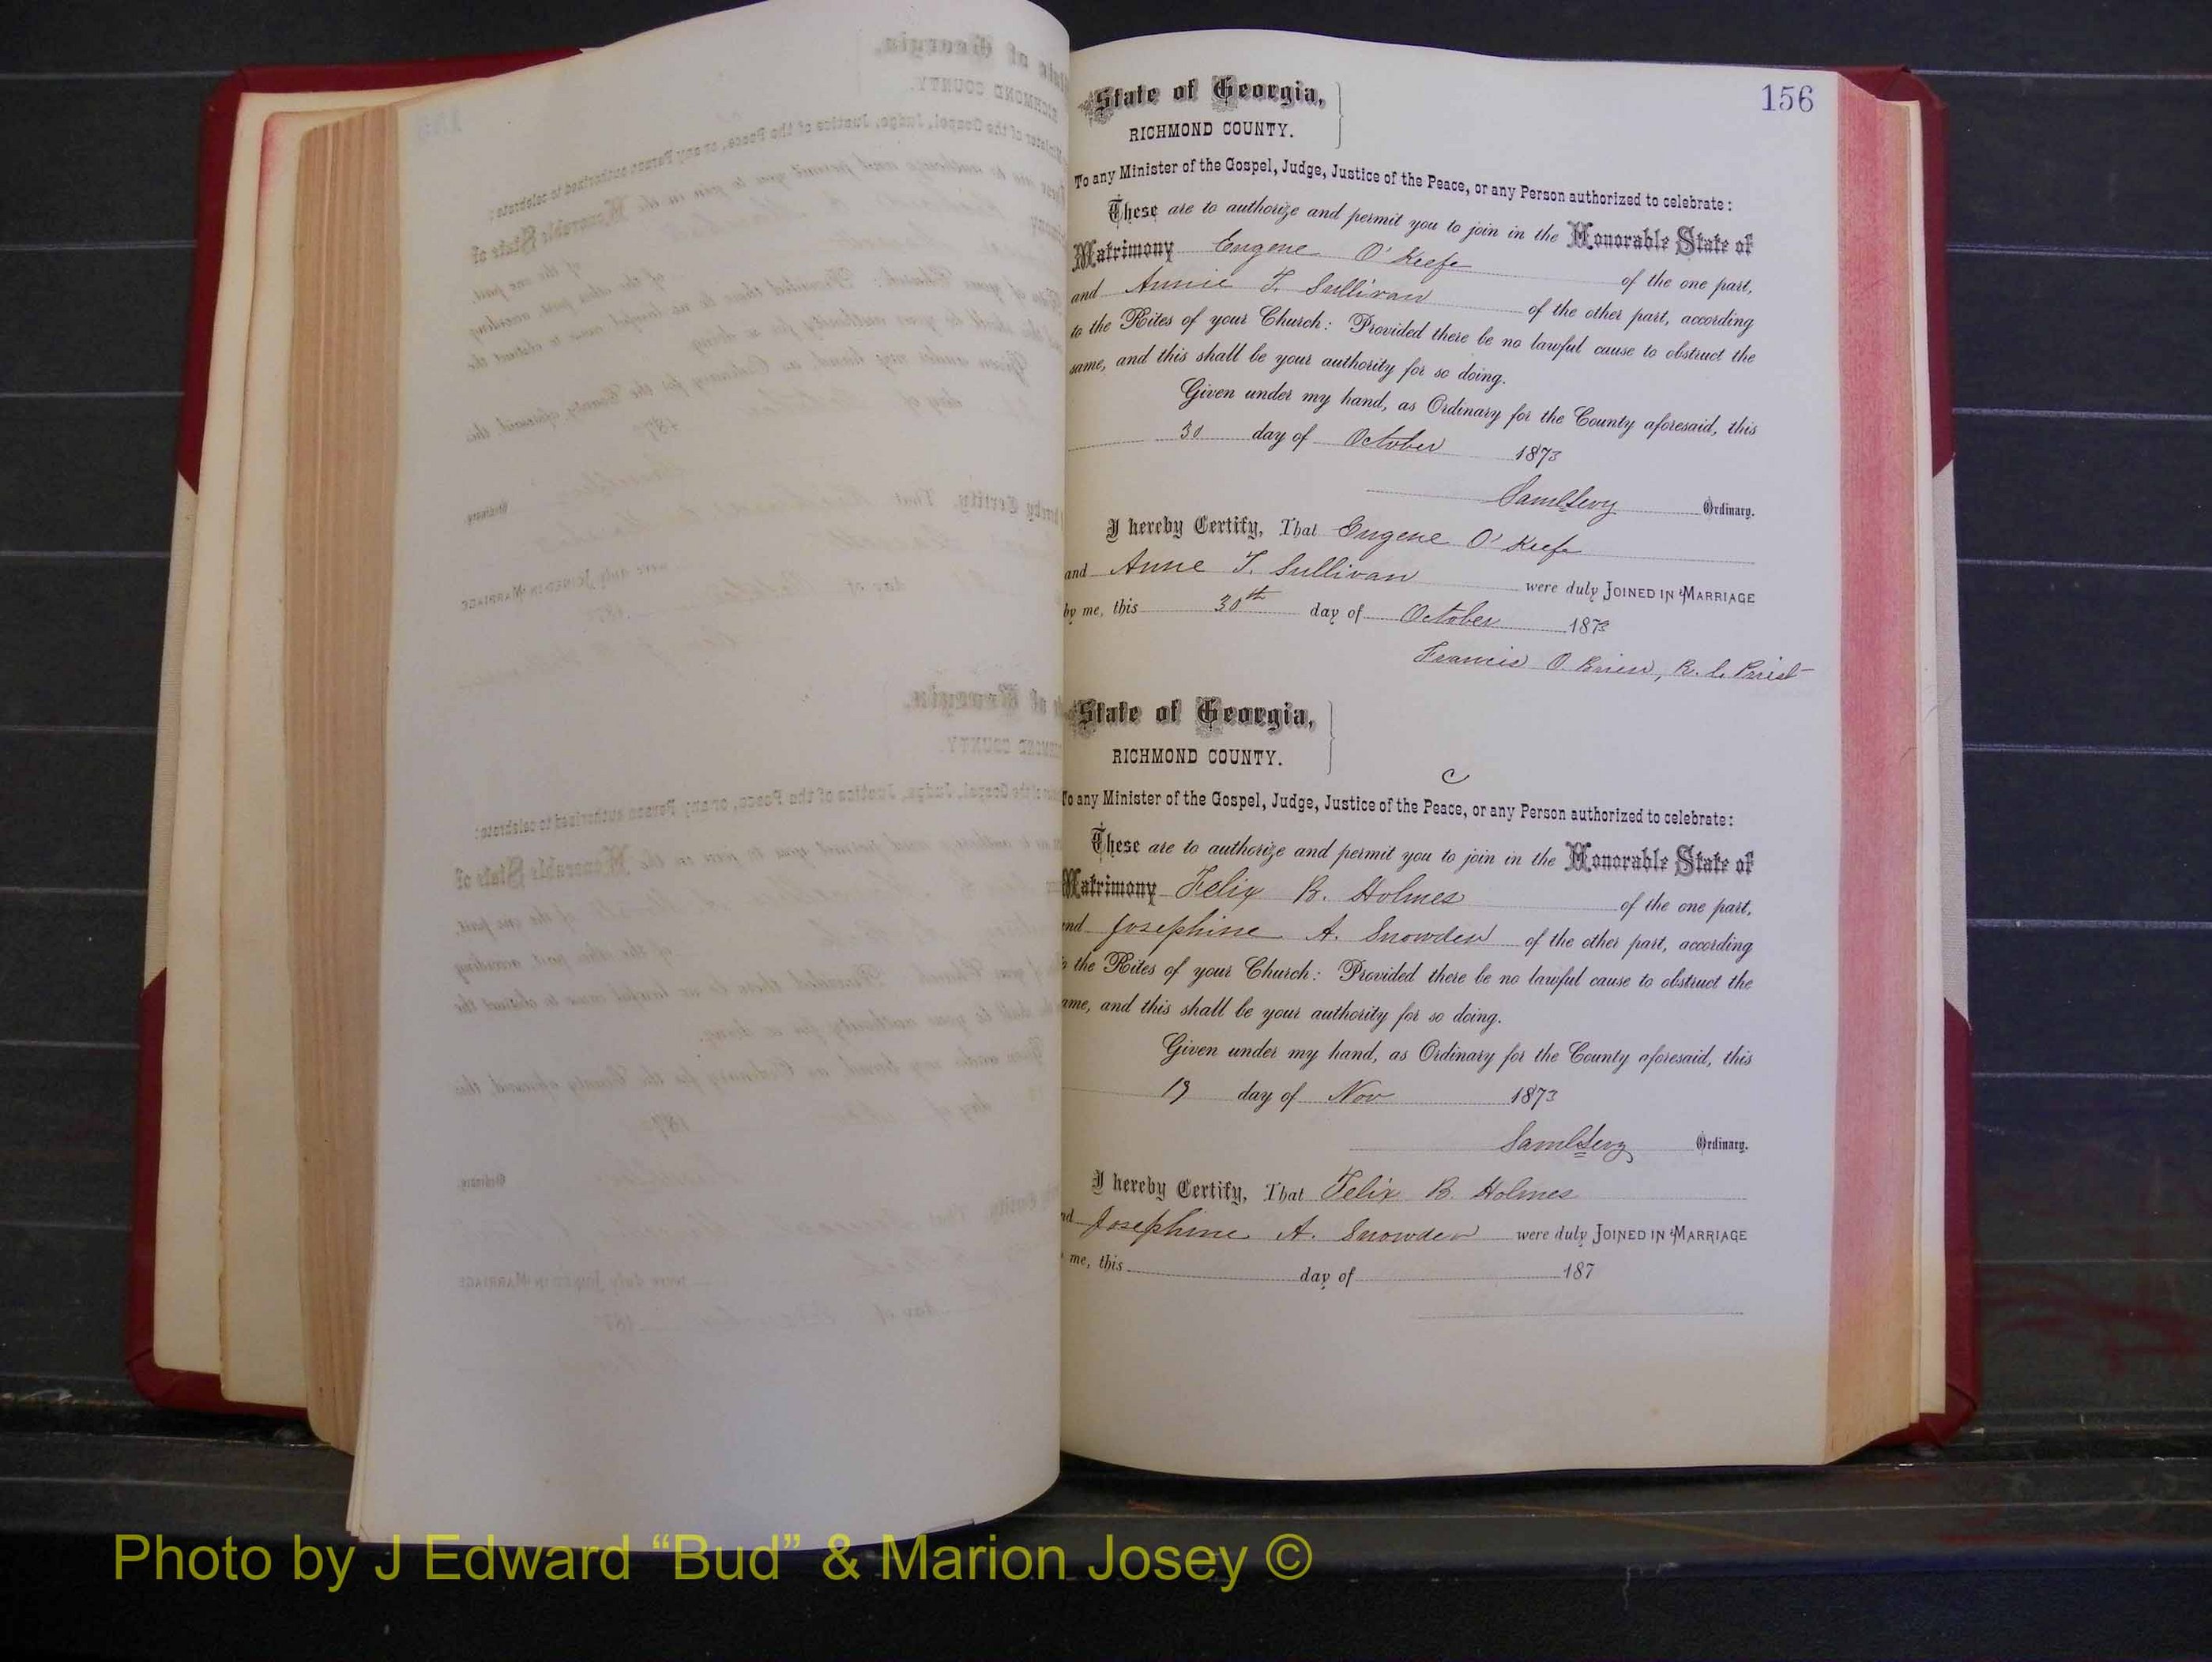 156
State of Georgia,
RICHMOND COUNTY.
To any Minister of the Gospel, Judge, Justice of the Peace, or any Person authorized to celebrate:
These are to authorize and permit you to join in the Honorable State of
Matrimony Eugene O'Keefe of the one part,
and Annie T. Sullivan of the other part, according
to the Rites of your Church: Provided there be no lawful cause to obstruct the
same, and this shall be your authority for so doing.
Given under my hand, as Ordinary for the County aforesaid, this
30 day of October 1873
Saml Levy Ordinary.
I hereby Certify, That Eugene O'Keefe
and Anne T. Sullivan were duly JOINED IN MARRIAGE
by me, this 30th day of October 1873
Francis O Brien, R. C. Priest
State of Georgia,
RICHMOND COUNTY.
C
To any Minister of the Gospel, Judge, Justice of the Peace, or any Person authorized to celebrate:
These are to authorize and permit you to join in the Honorable State of
Matrimony Felix B. Holmes of the one part,
and Josephine A. Snowden of the other part, according
to the Rites of your Church: Provided there be no lawful cause to obstruct the
ame, and this shall be your authority for so doing.
Given under my hand, as Ordinary for the County aforesaid, this
day of Nov 1873
Saml Levy Ordinary.
I hereby Certify, That Felix B. Holmes
nd Josephine A. Snowden were duly JOINED IN MARRIAGE
me, this day of 187
Photo by J Edward “Bud” & Marion Josey ©